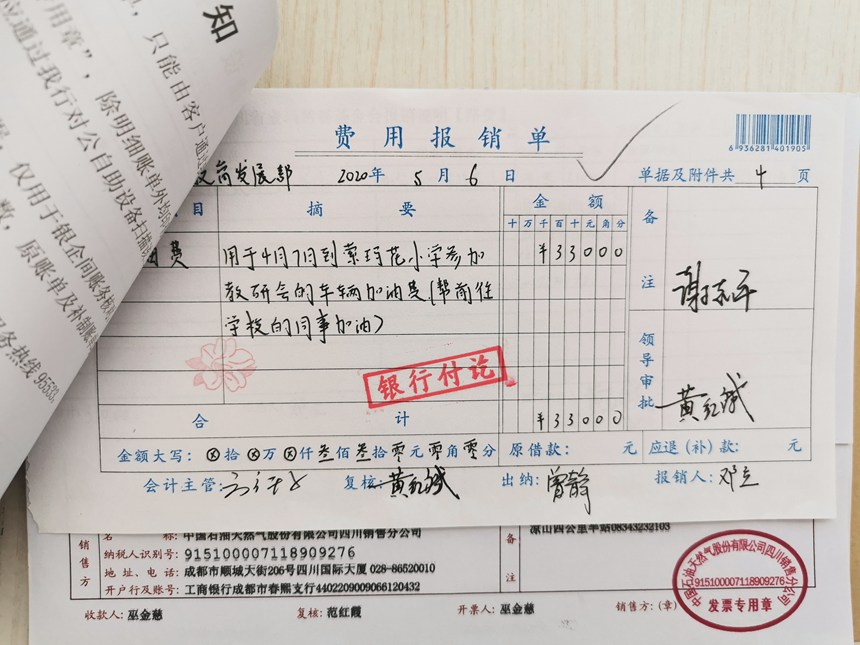 知
只能由客户通
用章"，除明细账单外均
应通过我行对公自助设备扫描
仅用于银企间账务核
数，原账单及补制账单
服务热线 95533
费用报销单
6 936281 401905
发展部 2020年 5 月 6 日 单据及附件共 4 页
目 摘要 金额 备注
十 万 千 百 十 元 角 分
费 用于4月7日到索玛花小学参加 ¥33000
教研会的车辆加油费(帮前往
学校的同事加油)
银行付讫
领导审批 黄红斌
合计 ¥33000
金额大写：ⓧ拾ⓧ万ⓧ仟叁佰叁拾零元零角零分 原借款： 元 应退（补）款： 元
会计主管： 复核：黄红斌 出纳：曾静 报销人：邓立
销售方
名 称：中国石油天然气股份有限公司四川销售分公司
纳税人识别号：915100007118909276
地 址、电 话：成都市顺城大街206号四川国际大厦 028-86520010
开户行及账号：工商银行成都市春熙支行4402209009066120432
备注
凉山四公里车站08343232103
收款人：巫金慈 复核：范红霞 开票人：巫金慈 销售方：（章）
中国石油天然气股份有限公司四川销售分公司
915100007118909276
发票专用章